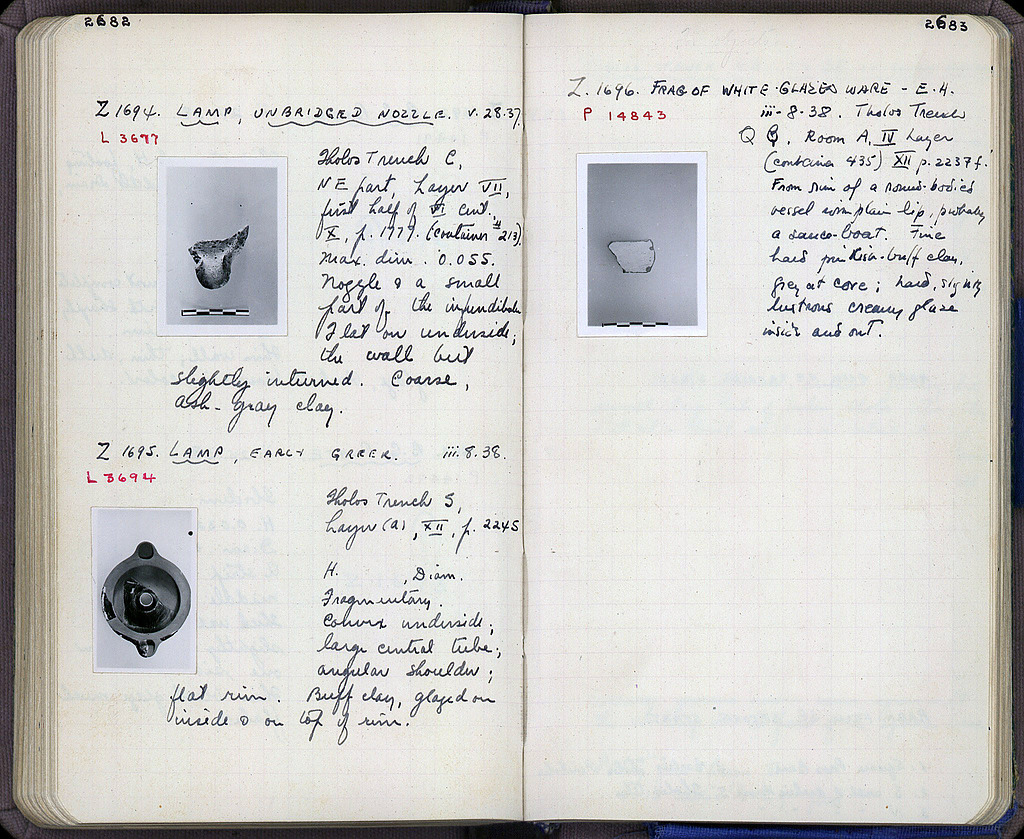 2682
Z 1694. LAMP, UNBRIDGED NOZZLE. V.28.37
L 3677
Tholos Trench C,
NE part, Layer VII,
first half of VI cent.,
X, p. 1777. (container # 213)
Max. dim. 0.055.
Nozzle & a small
part of the infundibulum
Flat on underside;
the wall but
slightly inturned. Coarse,
ash-gray clay.
Z 1695. LAMP, EARLY GREEK. iii.8.38.
L 3694
Tholos Trench S,
Layer (a), XII, p. 2245
H. , Diam.
Fragmentary.
Convex underside;
large central tube;
angular shoulder;
flat rim. Buff clay, glazed on
inside & on top of rim.
2683
Z. 1696. FRAG OF WHITE-GLAZED WARE - E.H.
P 14843
iii-8-38. Tholos Trench
Q Q, Room A, IV Layer
(container 435) XII p. 2237 f.
From rim of a round-bodied
vessel with plain lip, probably
a sauce-boat. Fine
hard pinkish-buff clay,
grey at core; hard, slightly
lustrous creamy glaze
inside and out.